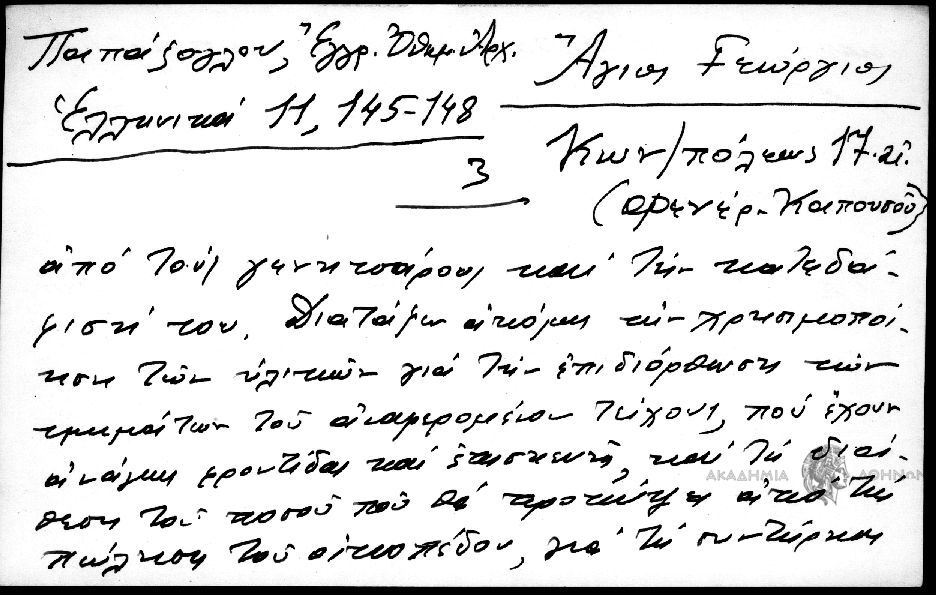 Παπάζογλου, Ἔγγρ. Ὀθωμ. Ἀρχ.
Ἑλληνικά 11, 145-148
Ἅγιος Γεώργιος
Κων/πόλεως 17. αἰ.
(Φενέρ-Καπουσοῦ)
3
ἀπό τούς γενητσάρους καί τήν κατεδά-
φισή του. Διατάζω ἀκόμη τήν χρησιμοποί-
ηση τῶν ὑλικῶν γιά τήν ἐπιδιόρθωση τῶν
τμημάτων τοῦ ἀναφερομένου τείχους, πού ἔχουν
ἀνάγκη φροντίδας καί ἐπισκευῆς, καί τή διά-
θεση τοῦ ποσοῦ πού θά προκύψει ἀπό τήν
πώληση τοῦ οἰκοπέδου, γιά τή συντήρηση
ΑΚΑΔΗΜΙΑ ΑΘΗΝΩΝ